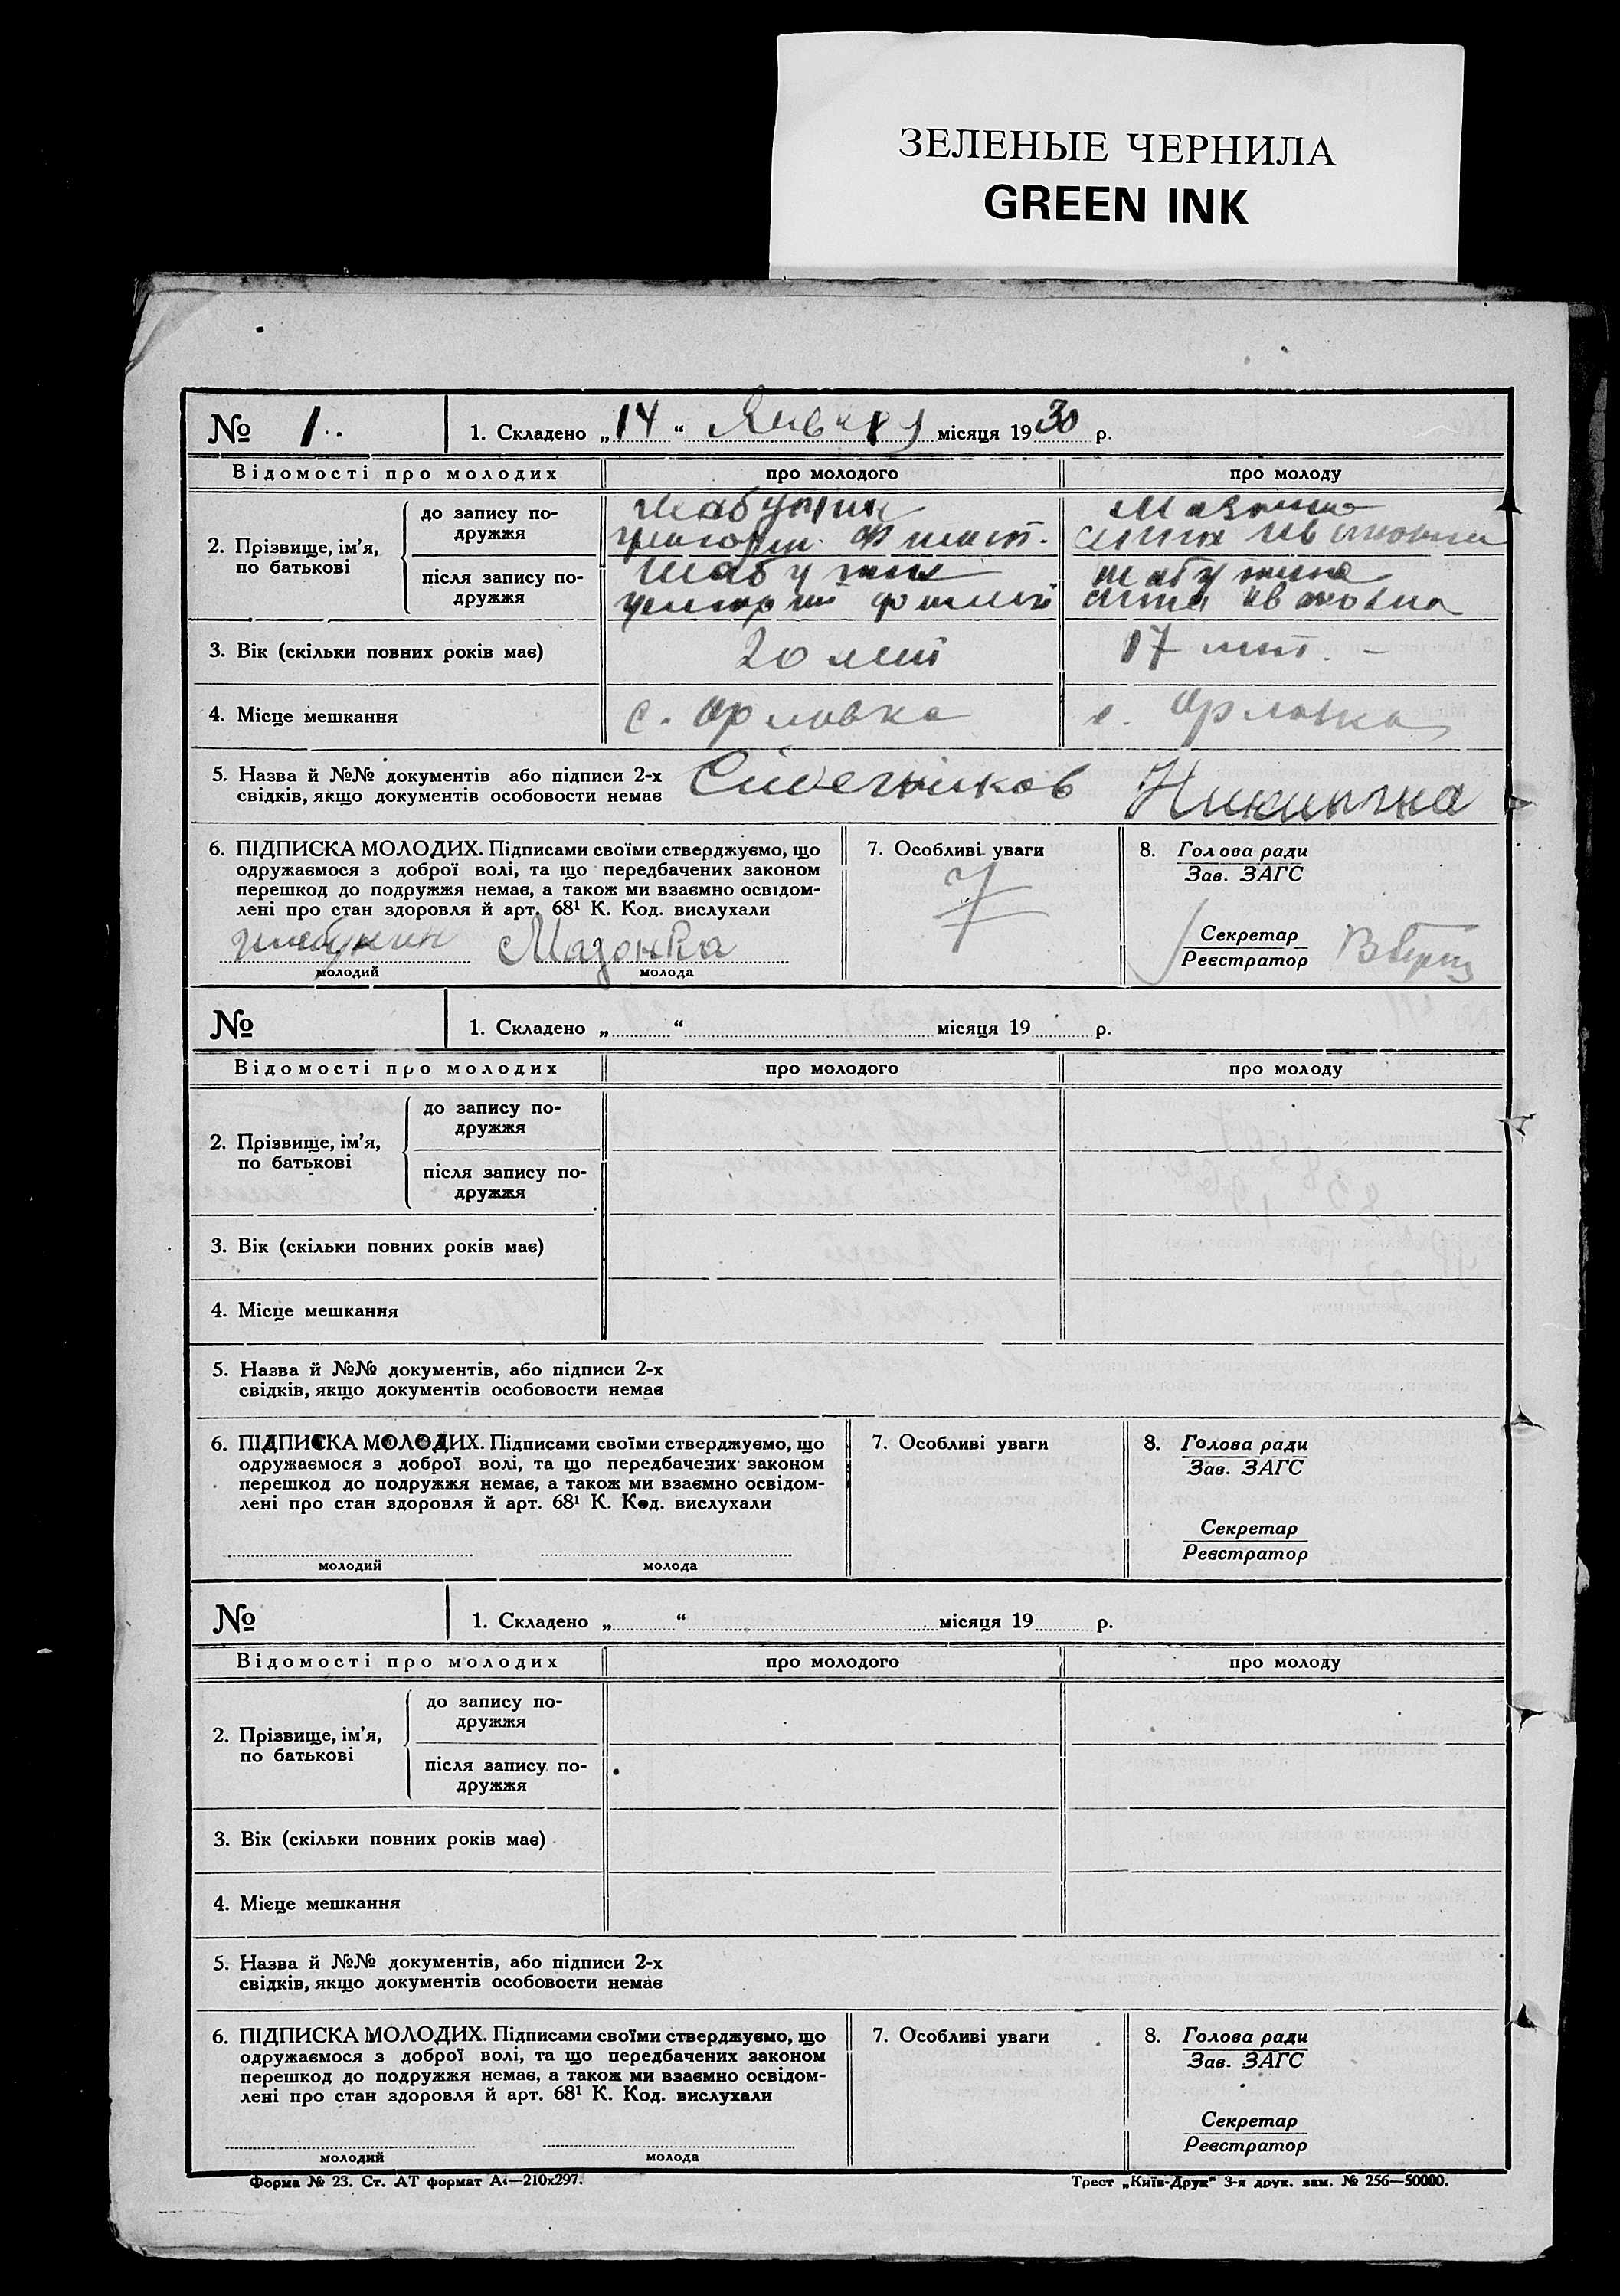 ЗЕЛЕНЫЕ ЧЕРНИЛА
GREEN INK
№ 1. 1. Складено „14“ Января місяця 1930 р.
Відомості про молодих про молодого про молоду
2. Прізвище, ім’я, по батькові
до запису подружжя
Шабунин
Григорий
після запису подружжя
Шабунин Шабунина
Григорий Ивановна
3. Вік (скільки повних років має) 20 лет 17 лет. –
4. Місце мешкання с. Орловка с. Орловка
5. Назва й №№ документів або підписи 2-х
свідків, якщо документів особовости немає
6. ПІДПИСКА МОЛОДИХ. Підписами своїми стверджуємо, що
одружаємося з доброї волі, та що передбачених законом
перешкод до подружжя немає, а також ми взаємно освідом-
лені про стан здоровля й арт. 68¹ К. Код. вислухали
Шабунин Мазонка
молодий молода
7. Особливі уваги
8. Голова ради
Зав. ЗАГС
Секретар
Реєстратор
№ 1. Складено „ “ місяця 19 р.
Відомості про молодих про молодого про молоду
до запису по-
дружжя
2. Прізвище, ім’я,
по батькові
після запису по-
дружжя
3. Вік (скільки повних років має)
4. Місце мешкання
5. Назва й №№ документів, або підписи 2-х
свідків, якщо документів особовости немає
6. ПІДПИСКА МОЛОДИХ. Підписами своїми стверджуємо, що
одружаємося з доброї волі, та що передбачених законом
перешкод до подружжя немає, а також ми взаємно освідом-
лені про стан здоровля й арт. 68¹ К. Код. вислухали
молодий молода
7. Особливі уваги
8. Голова ради
Зав. ЗАГС
Секретар
Реєстратор
№ 1. Складено „ “ місяця 19 р.
Відомості про молодих про молодого про молоду
до запису по-
дружжя
2. Прізвище, ім’я,
по батькові
після запису по-
дружжя
3. Вік (скільки повних років має)
4. Місце мешкання
5. Назва й №№ документів, або підписи 2-х
свідків, якщо документів особовости немає
6. ПІДПИСКА МОЛОДИХ. Підписами своїми стверджуємо, що
одружаємося з доброї волі, та що передбачених законом
перешкод до подружжя немає, а також ми взаємно освідом-
лені про стан здоровля й арт. 68¹ К. Код. вислухали
молодий молода
7. Особливі уваги
8. Голова ради
Зав. ЗАГС
Секретар
Реєстратор
Форма № 23. Ст. АТ формат А4—210х297. Трест „Київ-Друк“ 3-я друк. зам. № 256—50000.